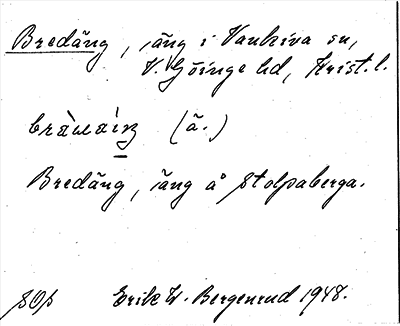 Bredäng, äng i Vankiva sn,
V. Göinge hd, Krist. l.
(ä.)
Bredäng, äng å Stolpaberga.
SOp Erik W. Bergenrud 1948.